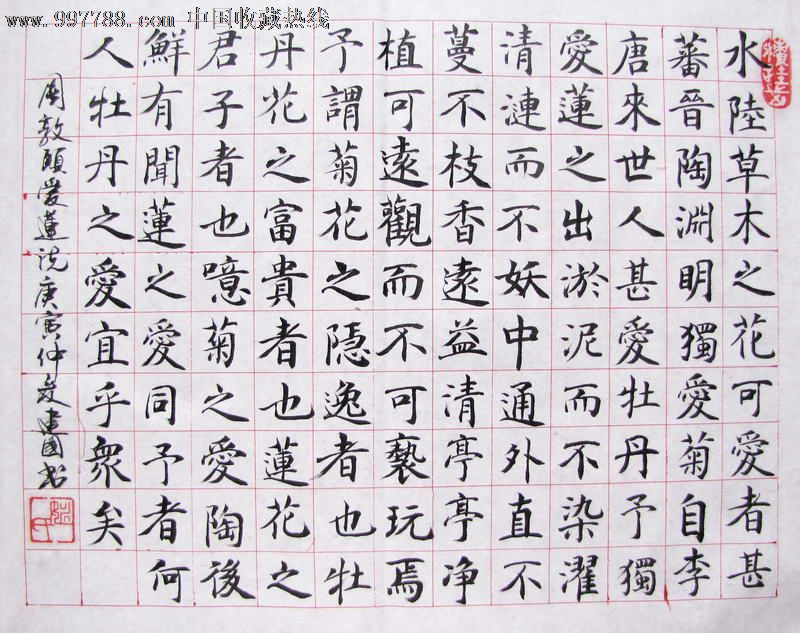 www.997788.com 中国收藏热线
水陸草木之花可愛者甚
蕃晉陶淵明獨愛菊自李
唐來世人甚愛牡丹予獨
愛蓮之出淤泥而不染濯
清漣而不妖中通外直不
蔓不枝香遠益清亭亭净
植可遠觀而不可褻玩焉
予謂菊花之隱逸者也牡
丹花之富貴者也蓮花之
君子者也噫菊之愛陶後
鮮有聞蓮之愛同予者何
人牡丹之愛宜乎衆矣
周敦頤愛蓮説庚寅仲夏建國书